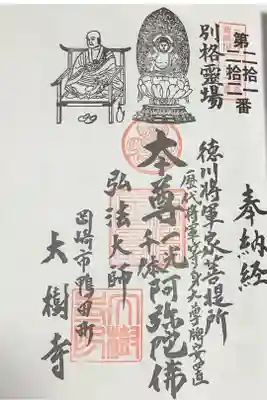 奉納経
第二拾一番
二拾二
別格霊場
徳川将軍家菩提所
歴代将軍等身大尊牌安置
本尊一光千体阿弥陀佛
弘法大師
岡崎市鴨田町
大樹寺